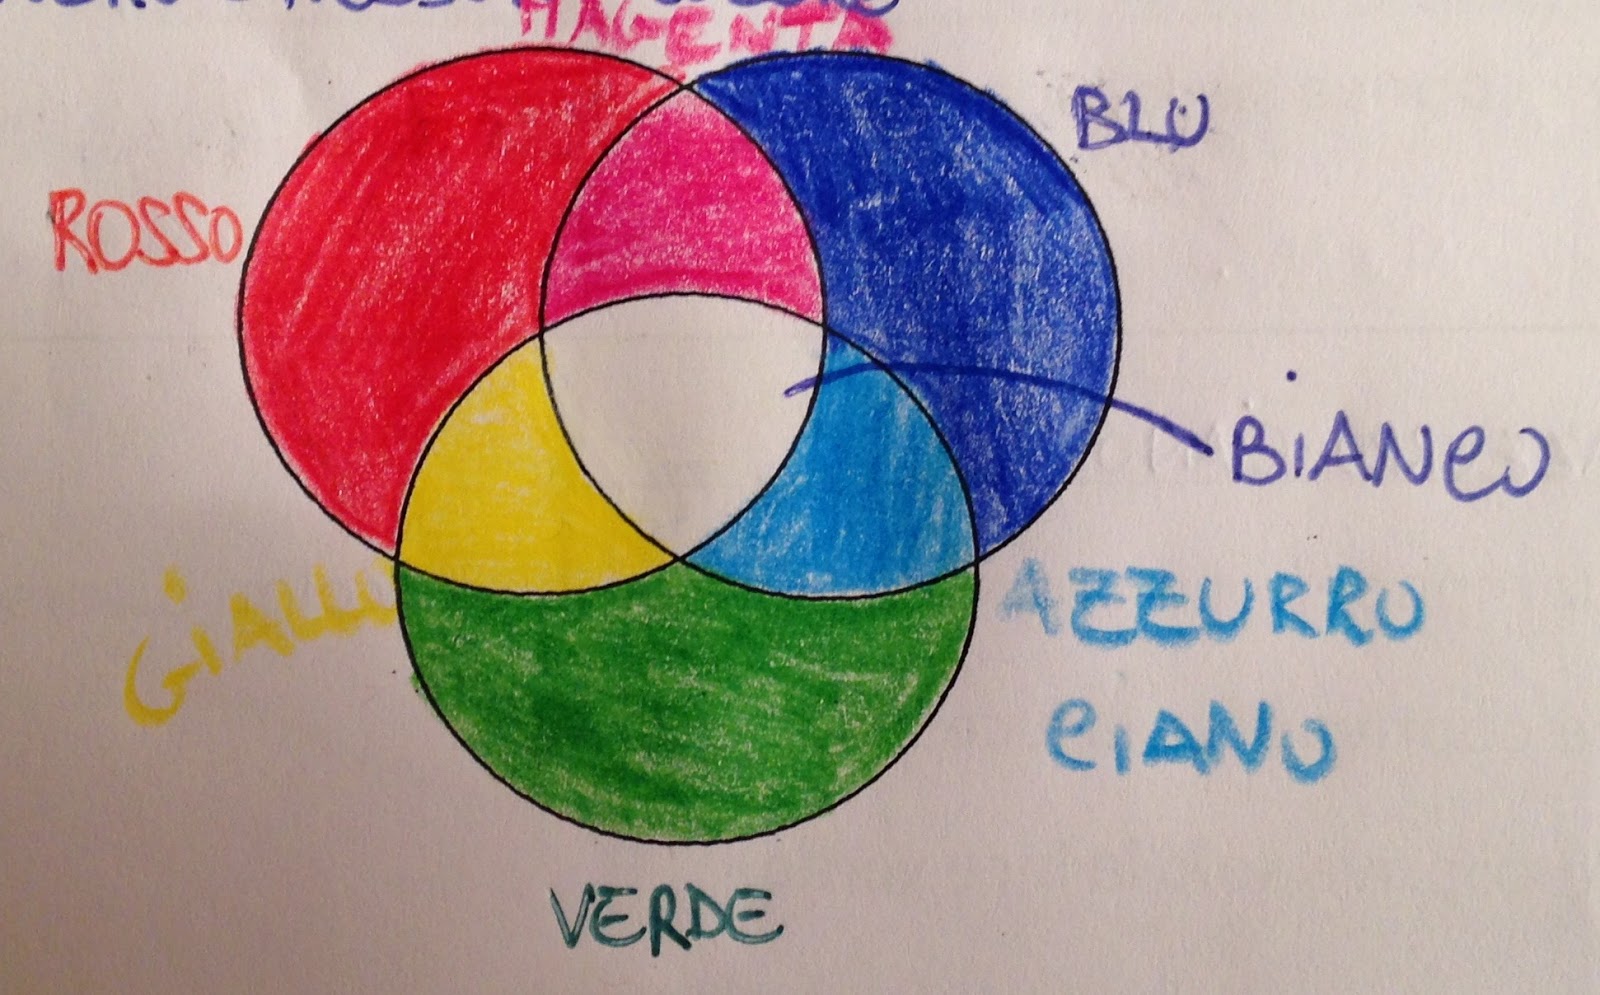 MAGENTA
BLU
ROSSO
BIANCO
GIALLO
AZZURRO
CIANO
VERDE